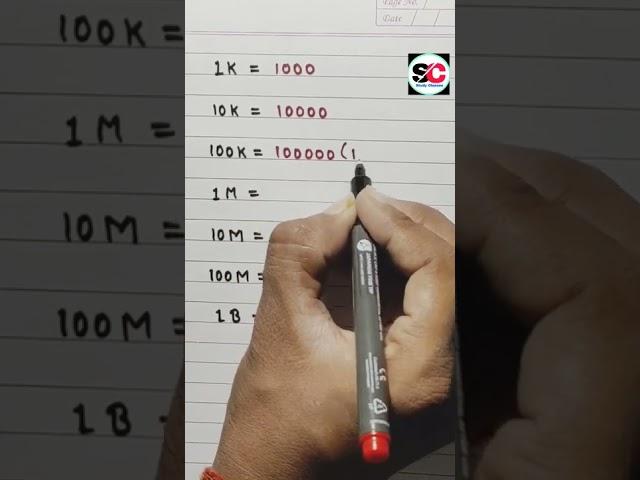 Page No.
Date
SC
Study Classes
1K = 1000
10K = 10000
100K = 100000 (1
1M =
10M =
100M =
1B
100K
1M =
10M =
100M =
1B